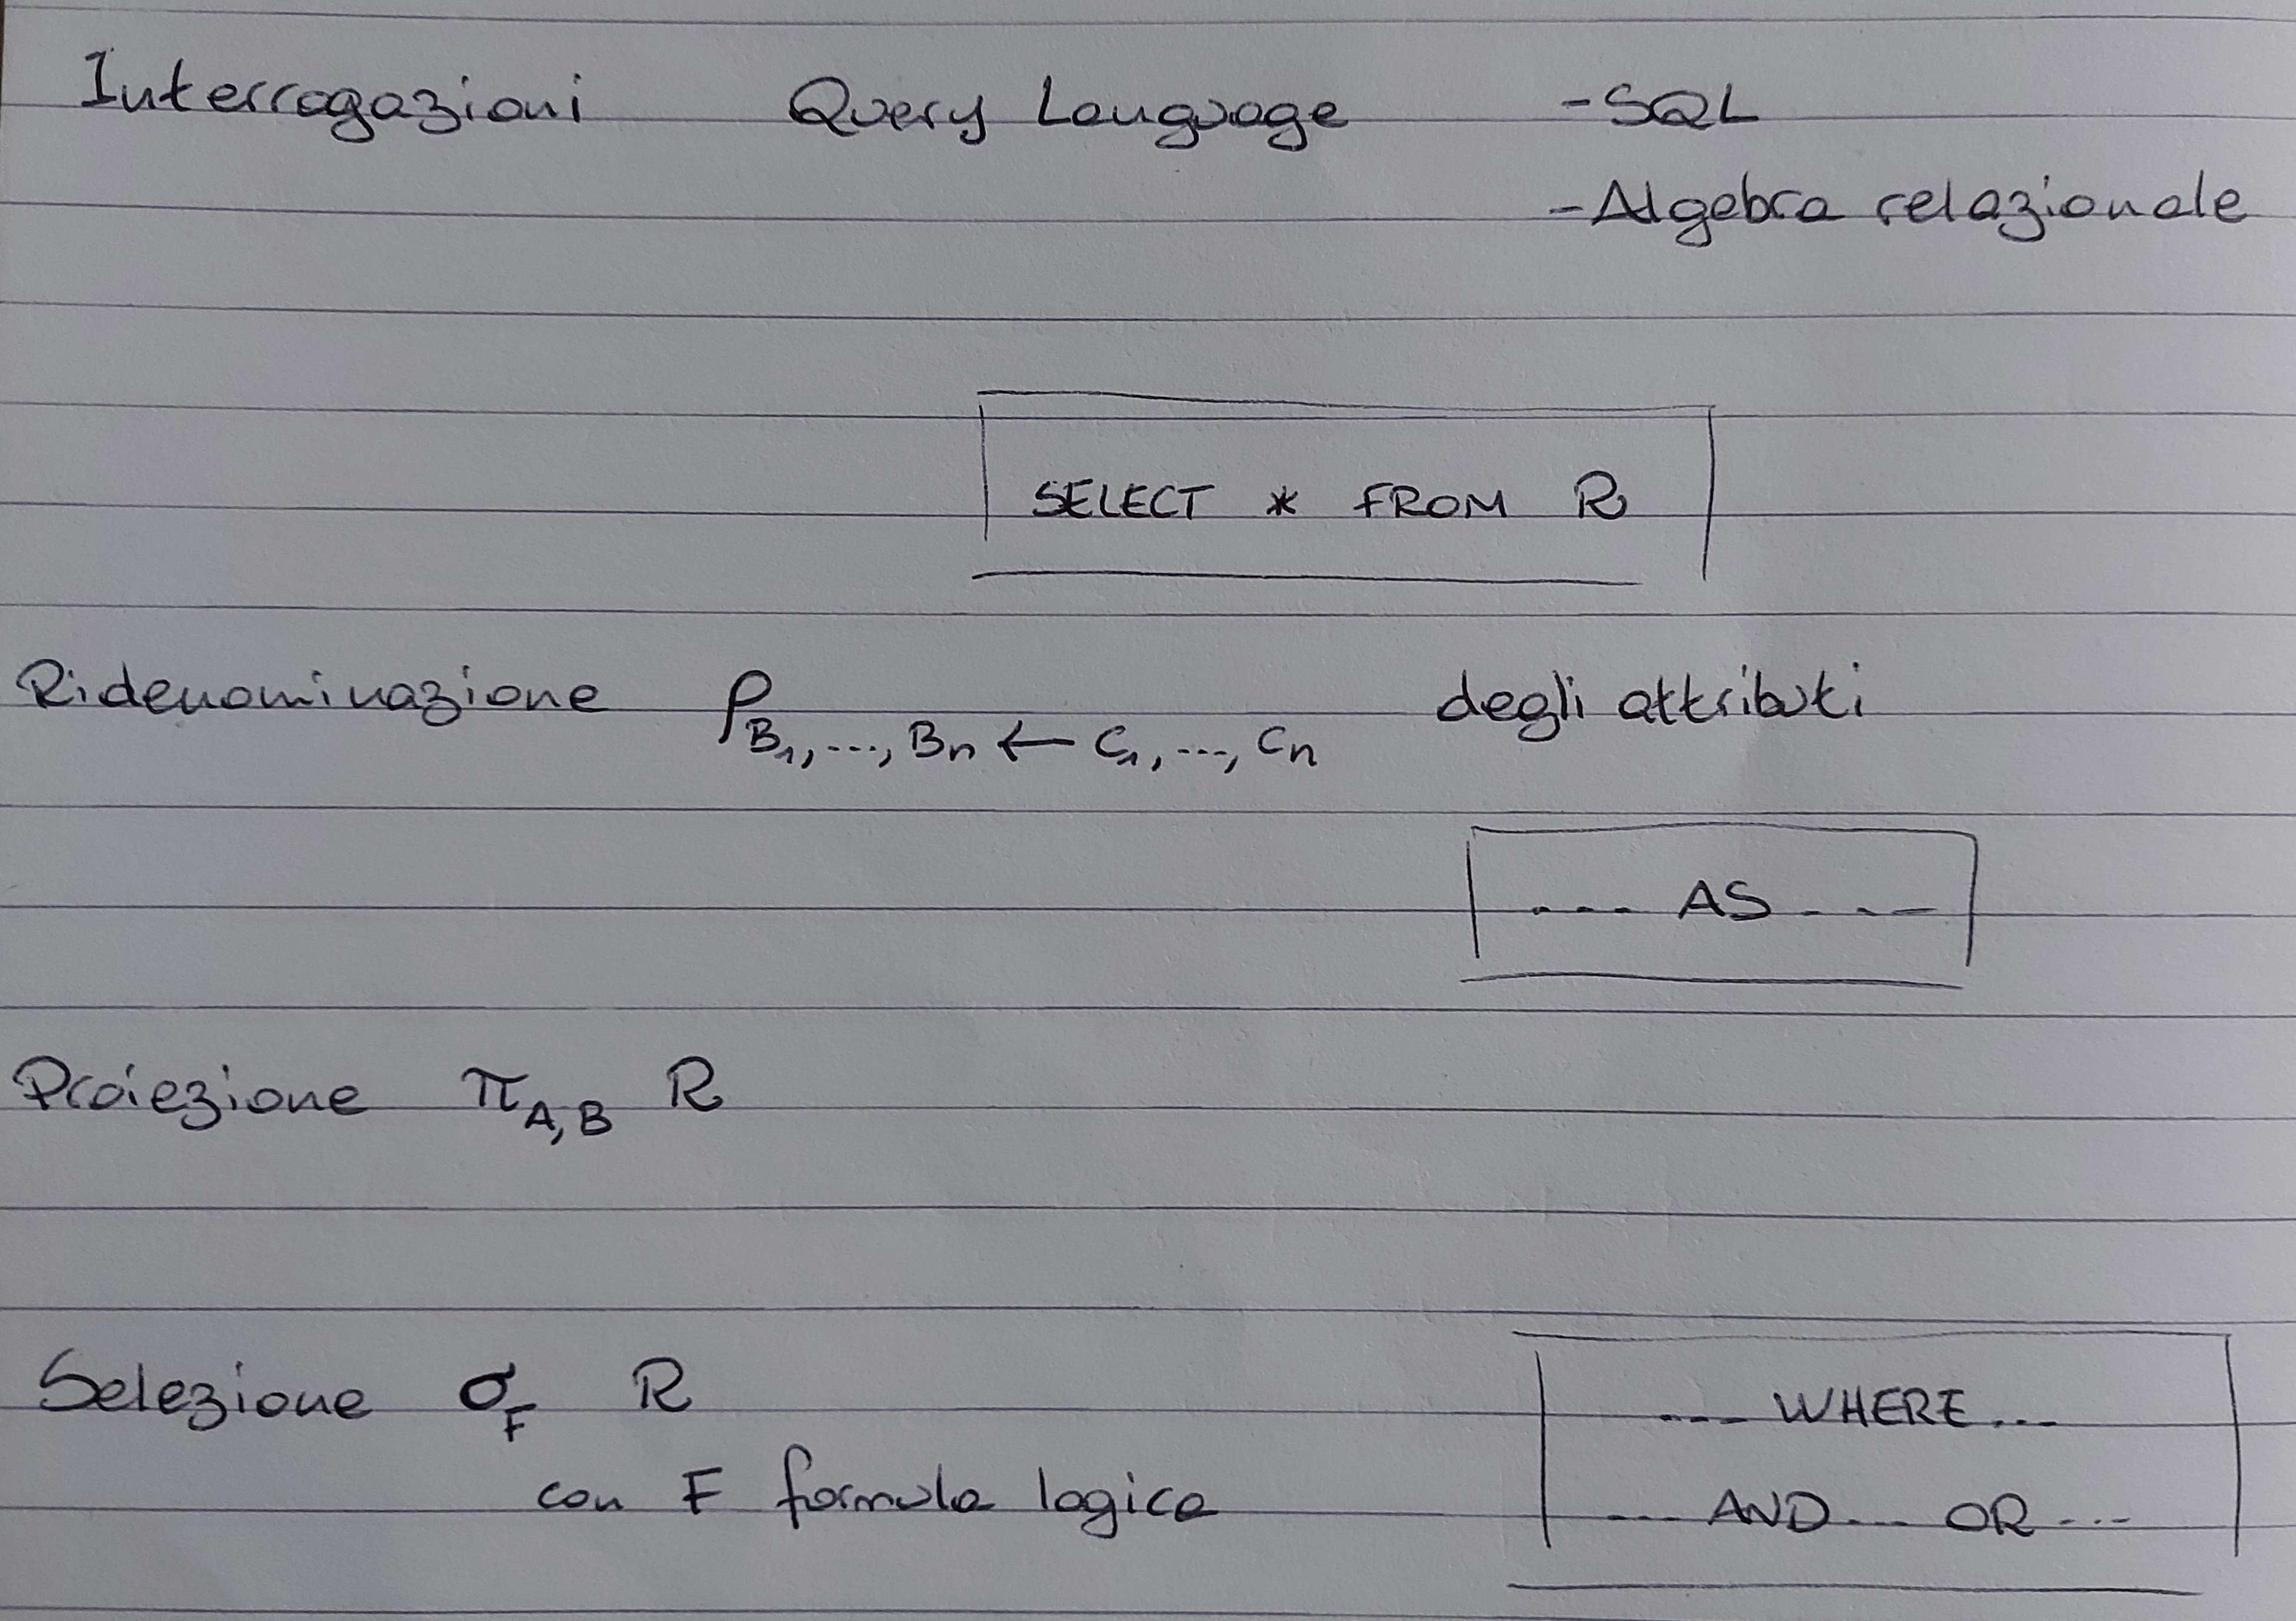 Interrogazioni Query Language - SQL
- Algebra relazionale
SELECT * FROM R
Ridenominazione ρ B₁, ..., Bn ← C₁, ..., Cn degli attributi
... AS ...
Proiezione π A,B R
Selezione σ F R
... WHERE ...
con F formula logica
... AND ... OR ...